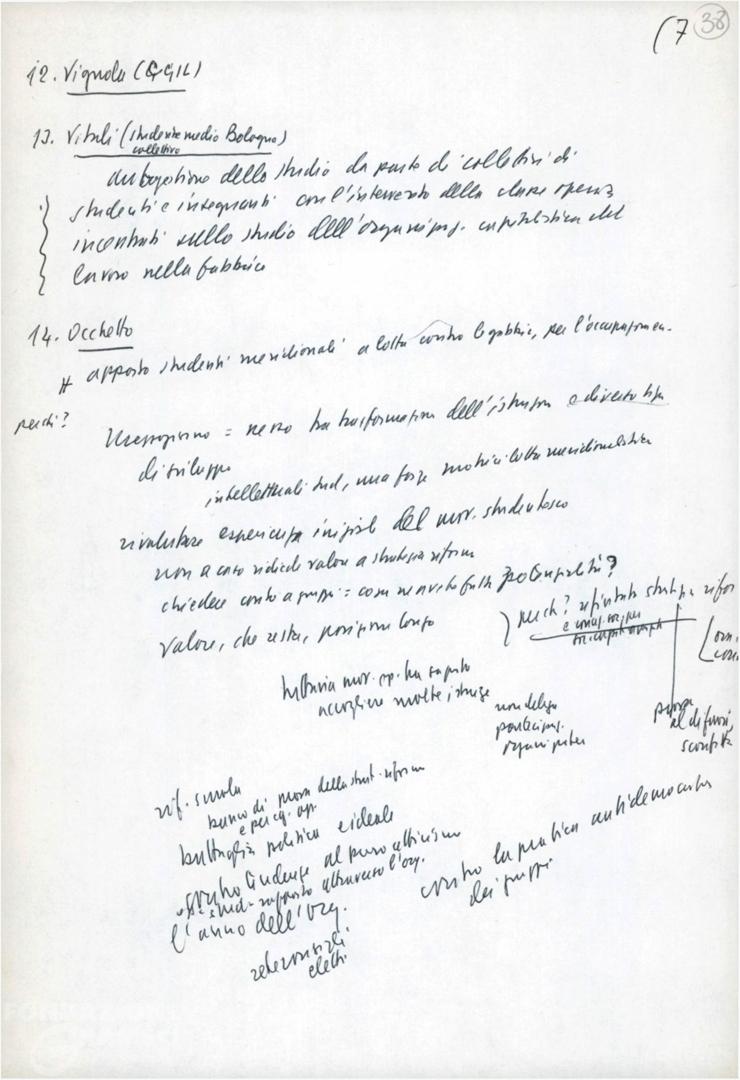 (7 38
12. Vignola (CGIL)
13. Vitali (studente medio Bologna)
collettivo
autogestione dello studio da parte di collettivi di
studenti e insegnanti con l'intervento della classe operaia
incentrati sullo studio dell'organizzaz. capitalistica del
lavoro nella fabbrica
14. Occhetto
apporto studenti meridionali a lotta contro le gabbie, per l'occupazione.
perché?
Mezzogiorno = nesso tra trasformazione dell'istruzione e diverso tipo
di sviluppo
intellettuali sud, una forza motrice lotta meridionalistica
rivalutare esperienza iniziale del mov. studentesco
non a caso ridiede valore a strategia riforme
chiedere conto a gruppi = cosa ne avete fatto potenzialità?
valore, che resta, posizione Longo
perché? rifiutata strategia rifor
tuttavia mov. op. ha saputo
accogliere molte istanze
non delega
partecipaz.
organi potere
al di fuori,
sconfitta
rif. scuola
banco di prova della strat. riforme
e per cl. op.
battaglia politica e ideale
contro tendenze al puro attivismo
rapporto attraverso l'org.
l'anno dell'org.
contro la pratica antidemocratica
dei gruppi
eletti